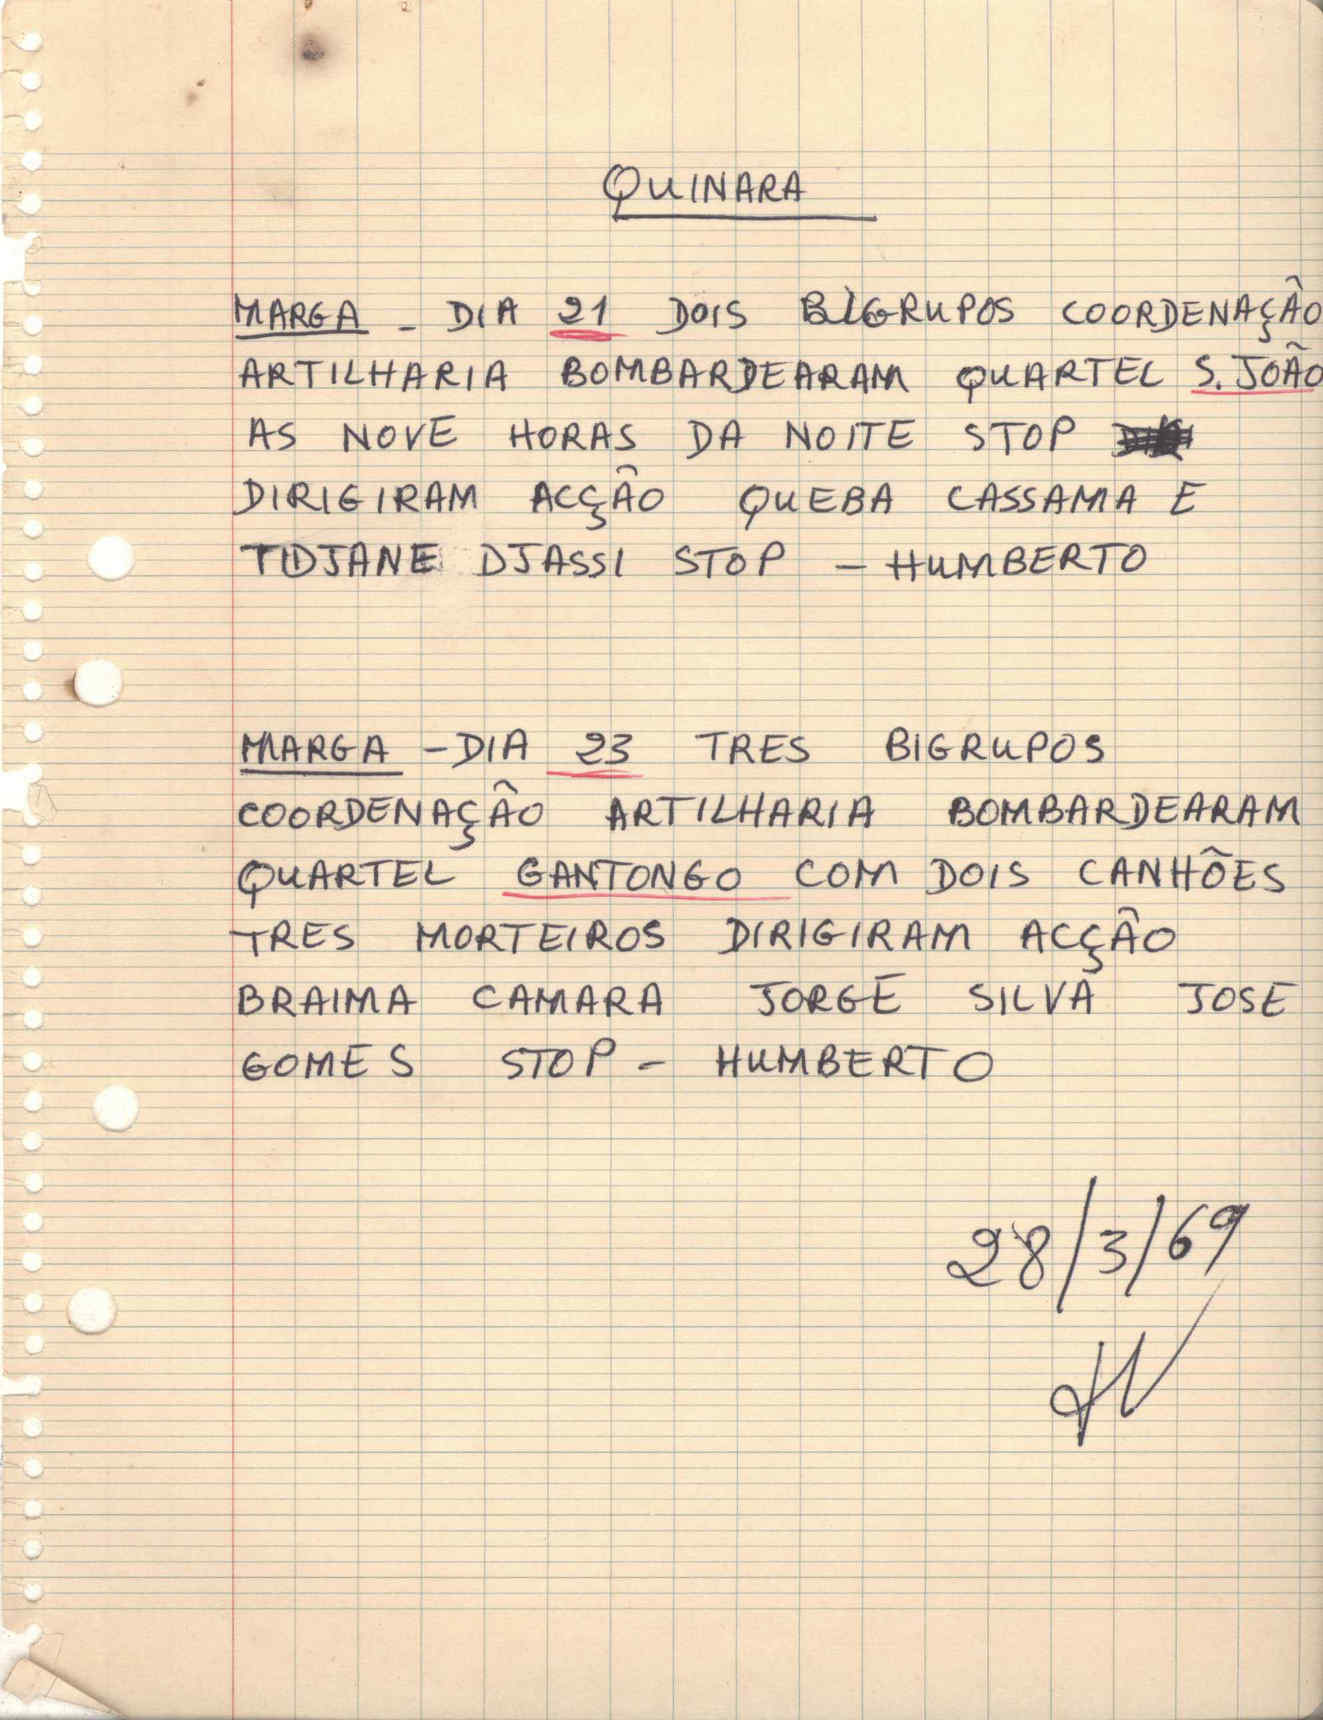 QUINARA
MARGA - DIA 21 DOIS BIGRUPOS COORDENAÇÃO
ARTILHARIA BOMBARDEARAM QUARTEL S. JOÃO
AS NOVE HORAS DA NOITE STOP
DIRIGIRAM ACÇÃO QUEBA CASSAMA E
TIDJANE DJASSI STOP - HUMBERTO
MARGA - DIA 23 TRES BIGRUPOS
COORDENAÇÃO ARTILHARIA BOMBARDEARAM
QUARTEL GANTONGO COM DOIS CANHÕES
TRES MORTEIROS DIRIGIRAM ACÇÃO
BRAIMA CAMARA JORGE SILVA JOSE
GOMES STOP - HUMBERTO
28/3/69